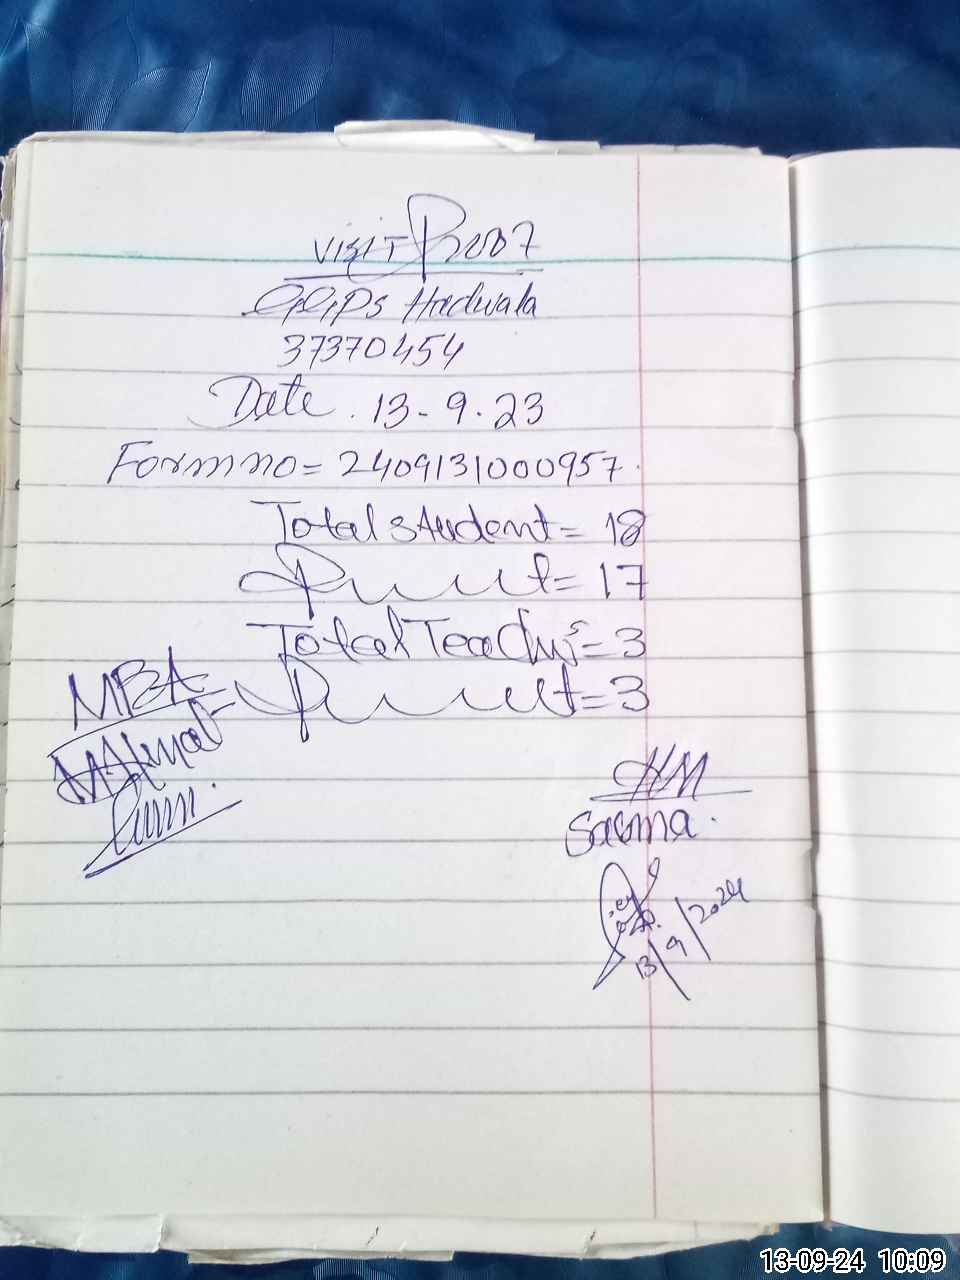 Visit Proof
GGPS Hadwala
37370454
Date. 13-9-23
Form no = 2409131000957.
Total student = 18
Present = 17
Total Teachers = 3
Present = 3
MEA
HM
Saema.
13/9/2024
13-09-24 10:09